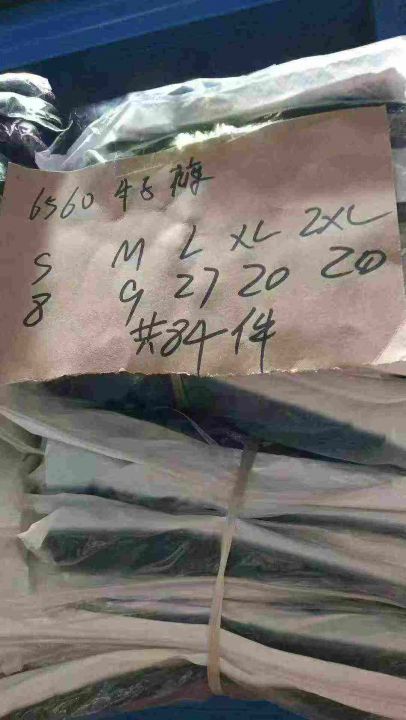 6560 牛仔裤
S M L XL 2XL
8 9 27 20 20
共84件